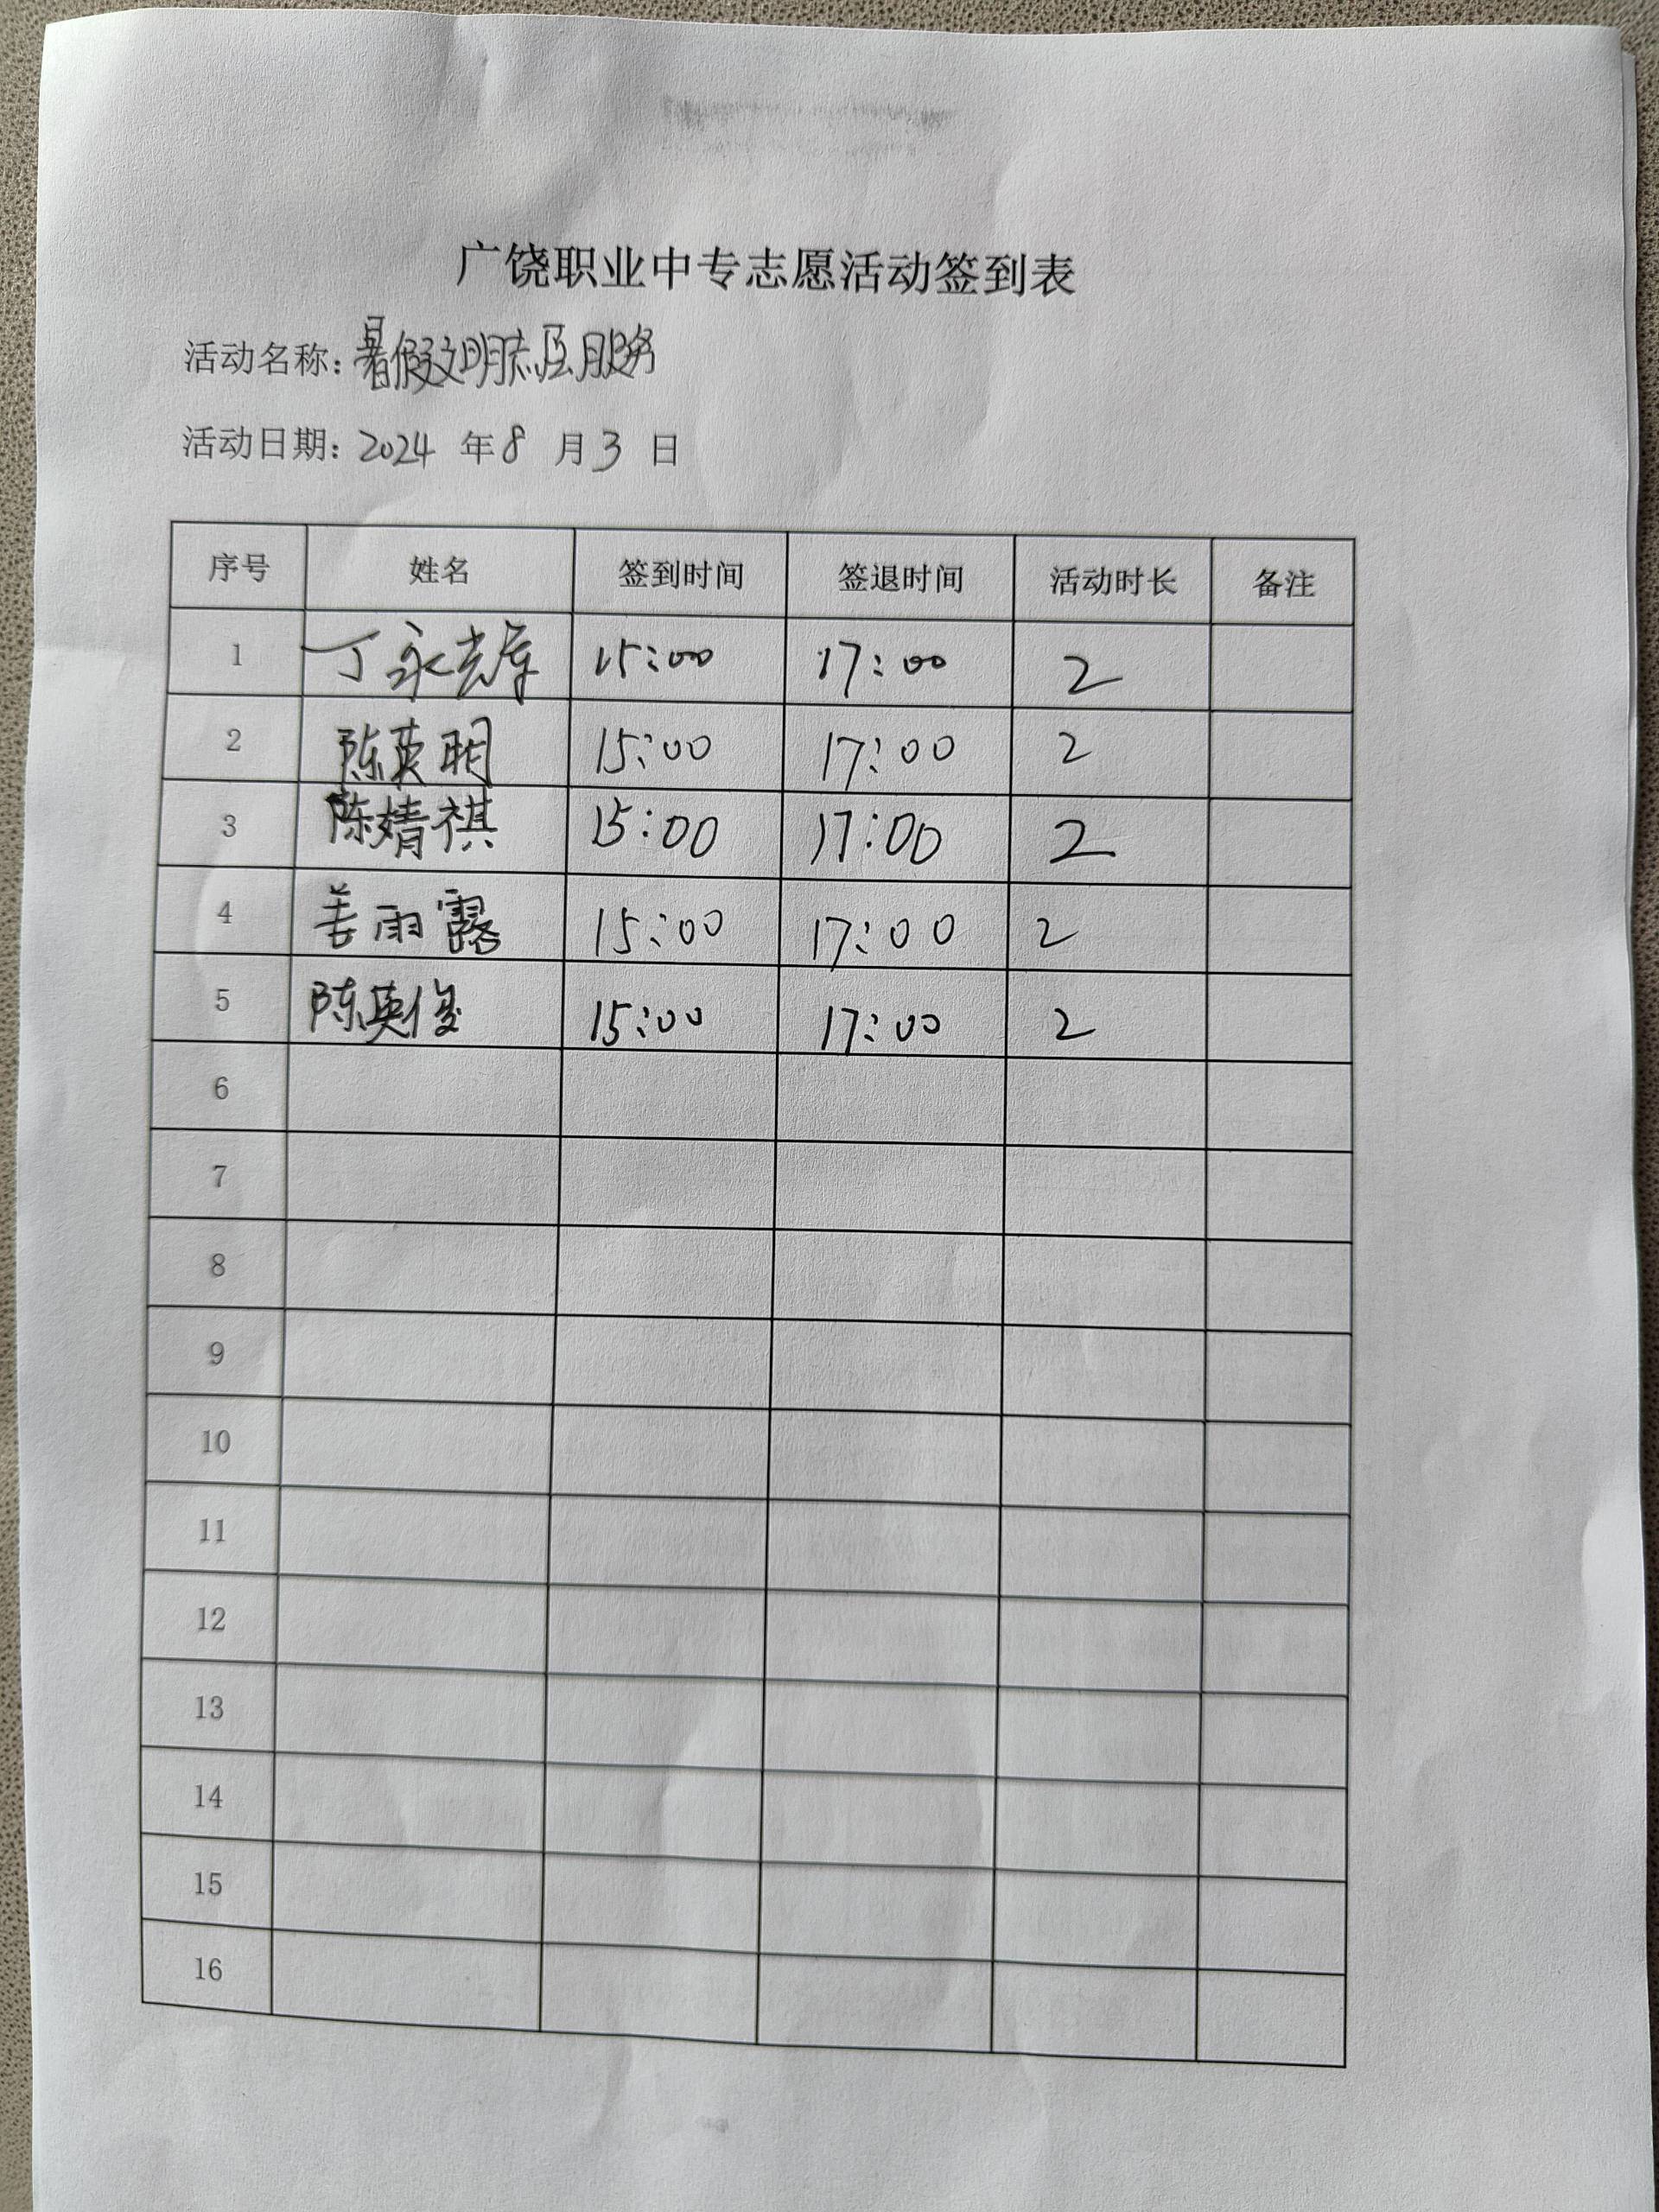 广饶职业中专志愿活动签到表
活动名称：暑假文明志愿服务
活动日期：2024 年 8 月 3 日
序号 姓名 签到时间 签退时间 活动时长 备注
1 丁永志库 15:00 17:00 2
2 陈英明 15:00 17:00 2
3 陈婧祺 15:00 17:00 2
4 姜雨露 15:00 17:00 2
5 陈英俊 15:00 17:00 2
6
7
8
9
10
11
12
13
14
15
16